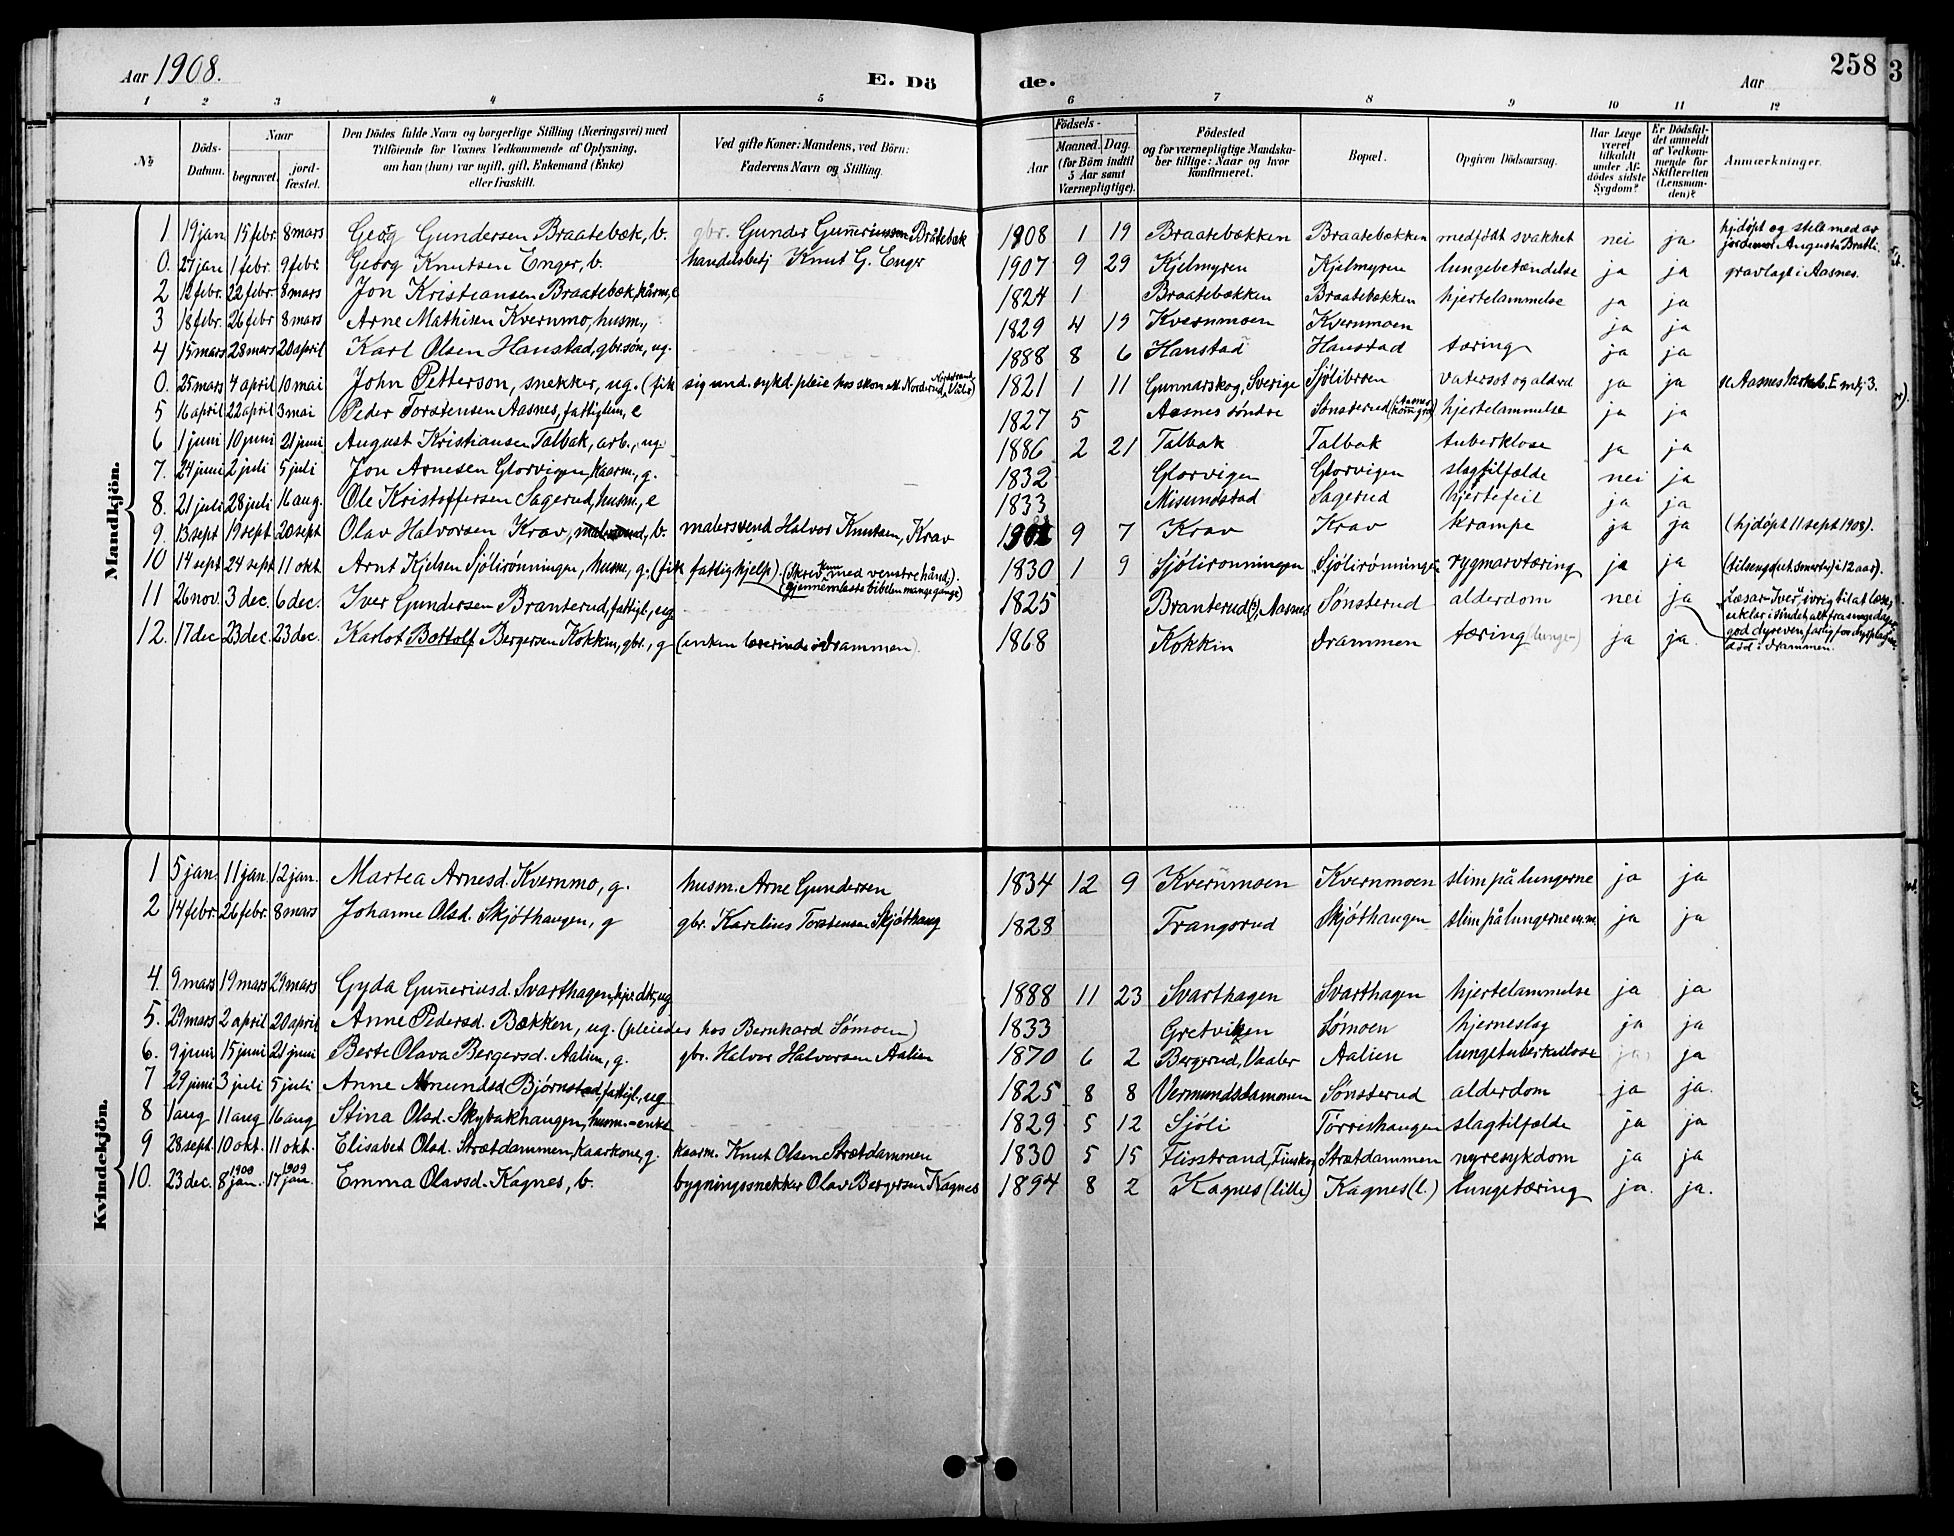 Aar 1908. E. Dö
de. Aar 258
3
1 2 3 4 5 6 7 8 9 10 11 12
№ Döds-Datum. Naar begravet. jord-fæstet. Den Dödes fulde Navn og borgerlige Stilling (Næringsvei) med Tilföiende for Voxnes Vedkommende af Oplysning, om han (hun) var ugift, gift, Enkemand (Enke) eller fraskilt. Ved gifte Koner: Mandens, ved Börn: Faderens Navn og Stilling. Födsels- Aar Maaned. Dag. (for Börn indtil 5 Aar samt Værnepligtige). Födested og for værnepligtige Mandskaber tillige: Naar og hvor konfirmeret. Bopæl. Opgiven Dödsaarsag. Har Læge været tilkaldt under Afdödes sidste Sygdom? Er Dödsfaldet anmeldt af Vedkommende for Skifteretten (Lensmanden)? Anmærkninger.
Mandkjön.
1. 19 jan 15 febr. 8 mars Georg Gundersen Braatebæk, b. gbr. Gunder Gunneriussen Bråtebæk 1908 1 19 Braatebækken Braatebækken medfödt svakhet nei ja hjdøpt og stelt med av jordemor Augusta Bratli.
0. 27 jan 1 febr. 9 febr. Georg Knutsen Enger, b. handelsbetj Knut G. Enger 1907 9 29 Kjelmyren Kjelmyren lungebetændelse ja ja gravlagt i Aasnes.
2 12 febr. 22 febr. 8 mars Jon Kristiansen Braatebæk, kårm, e 1824 1 Braatebækken Braatebækken hjertelammelse ja ja
3 18 febr. 26 febr 8 mars Arne Mathisen Kvernmo, husm., 1829 4 19 Kvernmoen Kvernmoen ja ja
4 15 mars 28 mars 20 april Karl Olsen Hanstad, gbr.søn, ug. 1888 8 6 Hanstad Hanstad tæring ja ja
0. 25 mars 4 april 10 mai John Petterson, snekker, ug. (fik sig und. sykd. pleie hos skom. M. Norderud, Våler) 1821 1 11 Gunnarskog, Sverige Sjölibroen vatersot og alderd ja ja se Aasnes kirkeb. E mkj 3.
5 16 april 22 april 3 mai Peder Torstensen Aasnes, fattiglem, e 1827 5 Aasnes söndre Sønsterud (Aasnes komgrd) hjertelammelse ja ja
6 1 juni 10 juni 21 juni August Kristiansen Talbak, arb., ug. 1886 2 21 Talbak Talbak tuberklose ja ja
7. 24 juni 2 juli 5 juli Jon Arnesen Glorvigen, kaarm., g. 1832 Glorvigen Glorvigen slagtilfælde nei ja
8. 21 juli 28 juli 16 aug. Ole Kristoffersen Sagerud, husm., e 1833 Misundstad Sagerud hjertefeil ja ja
9. 13 sept 19 sept 20 sept Olav Halvorsen Krav, b. malersvend Halvor Knutsen, Krav 9 7 Krav Krav krampe ja ja (hjdöpt 11 sept 1908).
10 14 sept 24 sept 11 okt. Arnt Kjelsen Sjölirönningen, husm., g. (fik fattighjelp). (Skrev kun med venstre hånd.). (gjennemlæste bibelen mange gange) 1830 1 9 Sjölirönningen Sjölirönningen rygmarvtæring ja ja (tilsengs (ut. smerte) i 12 aar).
11 26 nov. 3 dec. 6 dec. Iver Gundersen Branterud, fattigl., ug 1825 Branterud (?), Aasnes Sønsterud alderdom nei ja "Læsar-Iver", ivrig til at læse,
12. 17 dec 23 dec. 23 dec. Karlot Bottolf Bergersen Kokkin, gbr., g (enken lærerinde i Drammen). 1868 Kokkin Drammen tæring (lunge-) ja ja. död i Drammen.
Kvindekjön.
1 5 jan. 11 jan. 12 jan. Martea Arnesd. Kvernmo, g. husm. Arne Gundersen 1834 12 9 Kvernmoen Kvernmoen slim på lungerne ja ja
2 14 febr. 26 febr. 8 mars Johanne Olsd. Skjöthaugen, g gbr. Karelius Torstensen Skjöthaug 1828 Trangsrud Skjöthaugen slim på lungerne m.m. ja ja
4. 9 mars 19 mars 29 mars Gyda Gunneriusd. Svarthagen, hjv. dtr., ug 1888 11 23 Svarthagen Svarthagen hjertelammelse ja ja
5. 29 mars 2 april 20 april Anne Pedersd. Bækken, ug. (pleiedes hos Bernhard Sömoen) 1833 Gretviken Sömoen hjerneslag ja ja
6. 9 juni 15 juni 21 juni Berte Olava Bergersd. Aalien, g. gbr. Halvor Halvorsen Aalien 1870 6 2 Bergerud, Vaaler Aalien lungetuberkullose ja ja
7 29 juni 3 juli 5 juli Anne Amundsd Björnstad, fattigl., ug 1825 8 8 Vermundsdammen Sønsterud alderdom ja ja.
8 1 aug 11 aug 16 aug Stina Olsd. Skybakhaugen, husm.-enke 1829 5 12 Sjöli Törrishaugen slagtilfælde ja ja
9 28 sept. 10 okt. 11 okt. Elisabet Olsd. Strætdammen, kaarkone, g. kaarm. Knut Olsen Strætdammen 1830 5 15 Flisstrand, Finskog Strætdammen nyresykdom ja ja
10. 23 dec. 8 jan. 1909 17 jan. 1909 Emma Olavsd. Kagnes, b. bygningssnekker Olav Bergersen Kagnes 1894 8 2 Kagnes (lille) Kagnes (l.) lungetæring ja. ja.